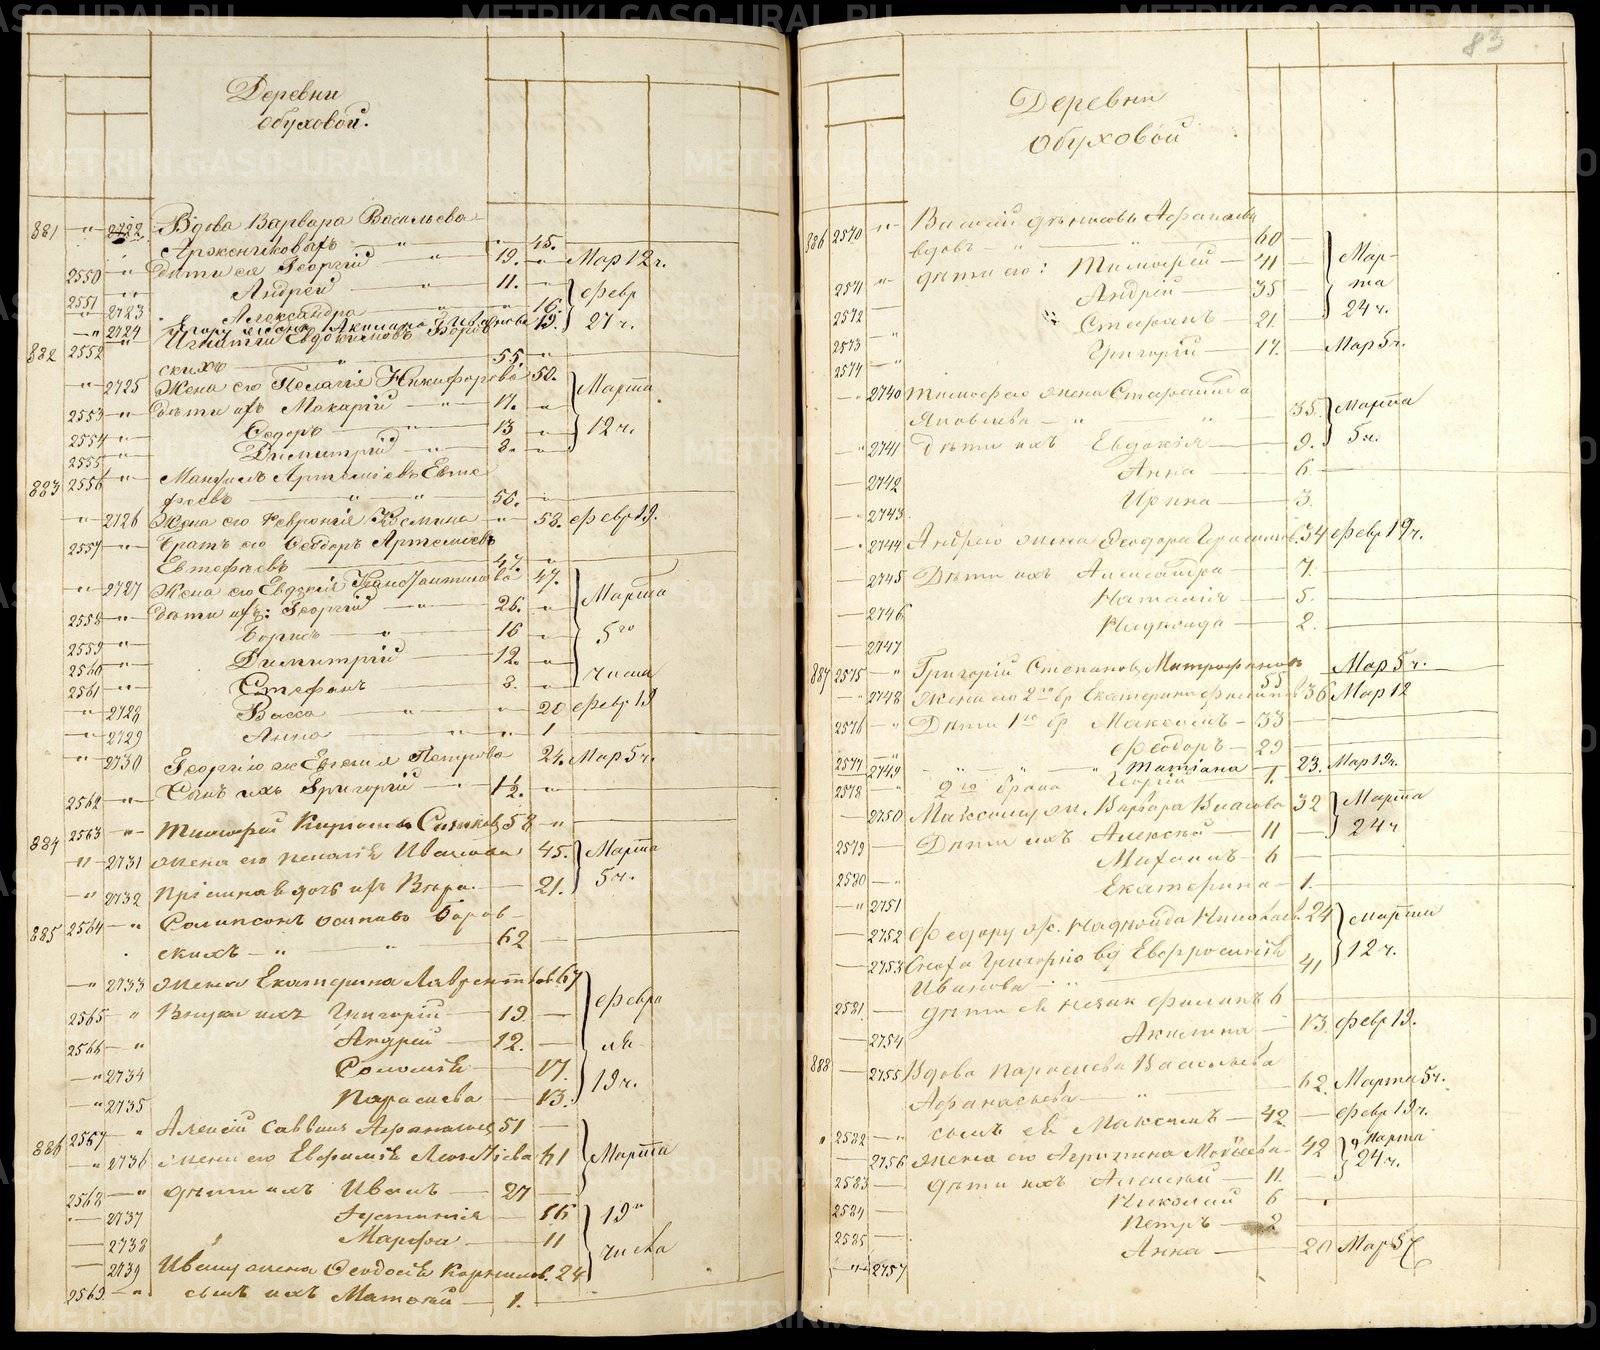 METRIKI.GASO-URAL.RU
Деревни
Обуховой.
881 " 2722 Вдова Варвара Васильева
" " 45.
2550 " дѣти ея Георгій " 19. " Мар 12 ч.
2551 " Андрей 11. " февр
" 2723 Александра " 16. 27 ч.
" 2724 Акилина Иванова 19.
882 2552 " Игнатій Евдокимовъ Боров
скихъ " 55. "
" 2725 Жена его Пелагія Никифорова 50. Марта
2553 " дѣти ихъ Макарій " 17. " 12 ч.
2554 " Ѳедоръ " 13 "
2555 " Димитрій " 8. "
883 2556 " Мануилъ Артемьевъ Евте
фѣевъ " " 56. "
" 2726 Жена его Февронія Козмина " 58. февр 19.
2557 " Братъ его Ѳеодоръ Артемьевъ
Евтефѣевъ 47. "
" 2727 Жена его Евдокія 47. Марта
2558 " дѣти ихъ: Георгій " 26. " 5го
2559 " Борисъ " 16 " числа
2560 " Димитрій 12. "
2561 " Стефанъ 8. "
" 2728 Васса " " 20 февр 19
" 2729 Анна " " 1
" 2730 Георгію ж Евгенія Петрова 24. Мар 5 ч.
2562 " Сынъ ихъ Григорій " 1½. "
884 2563 " Тимофей 58 "
" 2731 жена его Пелагія Иванова 45. Марта
" 2732 дочь ихъ Вѣра. 21. 5 ч.
885 2564 " Сампсонъ Осиповъ Боров-
скихъ " " 62
" 2733 жена Екатерина Лаврентьева 67 февра
2565 " Внуки ихъ Григорій 19 ля
2566 " Андрей 12. 19 ч.
" 2734 Соломія 17.
" 2735 Парасцева 13.
886 2567 " Алексій Саввинъ Афанасьевъ 51
" 2736 жена его Евфимія Леонтіева 61 Марта
2568 " дѣти ихъ Иванъ 27
2737 Іустинія 16 19го
2738 Марфа 11 числа
2739 Ивану жена Ѳеодосія Корнилов. 24
2569 " сынъ ихъ Матвей 1.
83
Деревни
Обуховой
886 2570 " Василій Денисовъ Афанасьевъ
вдовъ " 60 Мар-
2571 " дѣти его: Тимофей 41 та
2572 Андрій 35 24 ч.
2573 " Стефанъ 21.
2574 " Григорій 17. Мар 5 ч.
2740 Тимофею жена Стефанида
Яковлева " " 35. Марта
2741 Дѣти ихъ Евдокія 9. 5 ч.
2742 Анна 6
2743 Ирина 3.
2744 Андрею жена Ѳеодора Герасимов. 34 февр 19 ч.
2745 Дѣти ихъ Александра 7.
2746 Наталія 5.
2747 Надежда 2.
887 2575 " Григорій Степановъ Митрофановъ 55 Мар 5 ч.
" 2748 Жена его 2го бр Екатерина Филипов 36 Мар 12
2576 " Дѣти 1го бр Максимъ 33
2577 " Ѳеодоръ 29
2749 Татіана 23. Мар 19 ч.
2578 " 2го брака Георгій 1.
2750 Максиму ж. Варвара Власова 32 Марта
2579 Дѣти ихъ Алексей 11 24 ч
2580 " Михаилъ 6
" 2751 Екатерина 1.
2752 Федору ж. Надежда Николаев. 24 Марта
2753 Сноха Григорію вд Евфросинія 41 12 ч.
Иванова "
2581 дѣти ея незак Филипъ 6
2754 Акилина 13. февр 19.
888 2755 Вдова Парасцева Васильева
Афанасьева " 62. Марта 5 ч.
2582 " сынъ ея Максимъ 42 февр 19 ч.
2756 жена его Агрипина Моѵсеева 42 Марта
2583 дѣти ихъ Алексей 11. 24 ч.
2584 Николай 6
2585 Петръ 2
" 2757 Анна 20 Мар 5 ч